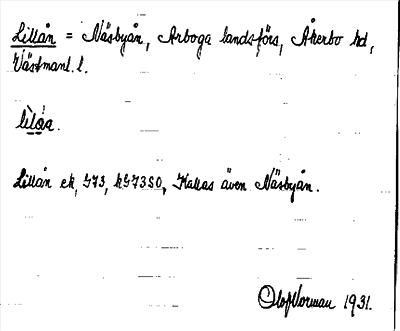 Lillån = Näsbyån, Arboga landsförs, Åkerbo hd,
Västmanl. l.
lìlåa.
Lillån ek, G73, hG73SO, Kallas även Näsbyån.
Olof Norman 1931.